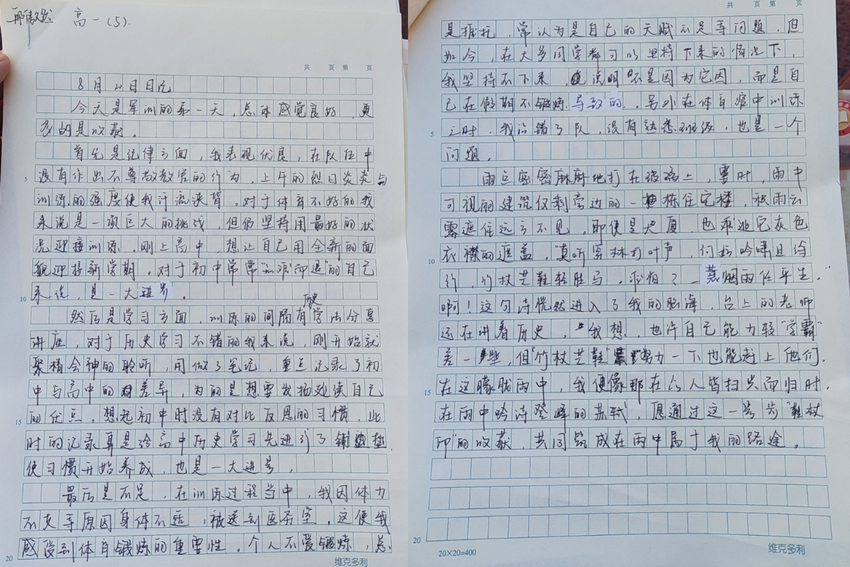 高一(5)
共 页 第 页
8月21日日记
今天是军训的第一天,总体感觉良好,更
多的是收获。
首先是纪律方面,我表现优良,在队伍中
没有作出不尊敬教官的行为,上午的烈日炎炎与
训练的强度使我汗流浃背。对于体育不好的我
来说是一项巨大的挑战,但仍坚持用最好的状
况迎接训练。刚上高中,想让自己用全新的面
貌迎接新学期。对于初中常常“知难即退”的自己
来说,是一大进界。
然后是学习方面,训练的间隔有历史学法分享
讲座,对于历史学习不错的我来说,刚开始就
聚精会神的聆听,用做了笔记,重点记录了初
中与高中的差异,为的是想要发扬延续自己
的优点。想起初中时没有对比反思的习惯,此
时的记录算是给高中历史学习先进行了铺垫,
使习惯开始养成,也是一大进步。
最后是不足,在训练过程当中,我因体力
不支等原因身体不适,被送到医务室。这使我
感受到体育锻炼的重要性。个人不爱锻炼,总
5
10
15
20
共 页 第 页
是推托,常认为是自己的天赋不足等问题,但
如今,在大多同学都可以坚持下来的情况下,
我坚持不下来,说明不是因为它因,而是自
己在假期不锻炼导致的。另外在体育馆中训练
之时,我站错了队,没有熟悉班级,也是一个
问题。
雨点密密麻麻地打在玻璃上,霎时,雨中
可视的建筑仅剩旁边的一栋住宅楼,被雨云
雾遮住远方不见,即便是大厦,也乘逃它灰色
衣襟的遮盖,“莫听穿林打叶声,何妨吟啸且徐
行,竹杖芒鞋轻胜马,谁怕?一蓑烟雨任平生。”
啊!这句诗恍然进入了我的脑海,台上的老师
还在讲着历史。我想,也许自己能力较“学霸”
差一些,但“竹杖芒鞋”努力一下也能赶上他们。
在这朦胧雨中,我便像那在六人皆扫兴而归时,
在雨中吟诗登峰的苏轼,愿通过这一步步“鞋杖
印”的收获,共同铸成在雨中属于我的路途。
5
10
15
20
20×20=400
维克多利
维克多利